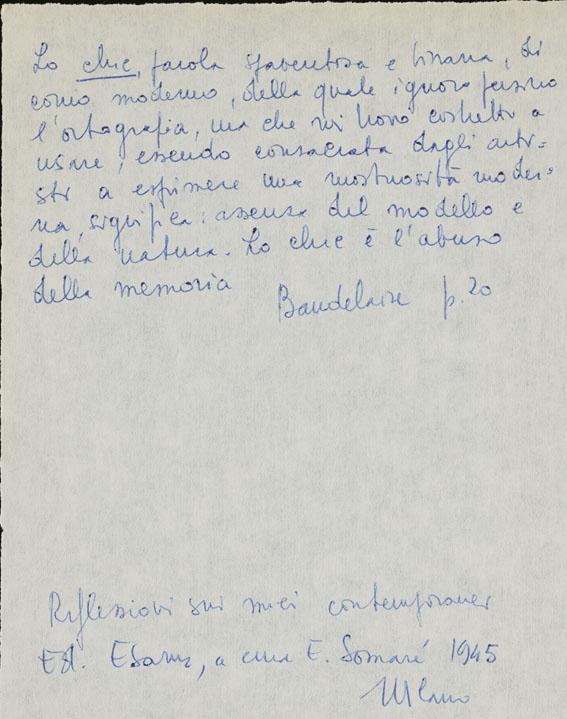 Lo chic, parola spaventosa e bizzarra, di
conio moderno, della quale ignoro persino
l'ortografia, ma che mi trovo costretto a
usare, essendo consacrata dagli arti=
sti a esprimere una mostruosità moder=
na, significa: assenza del modello e
della natura. Lo chic è l'abuso
della memoria
Baudelaire p. 20
Riflessioni sui miei contemporanei
Ed. Esame, a cura E. Somaré 1945
Milano